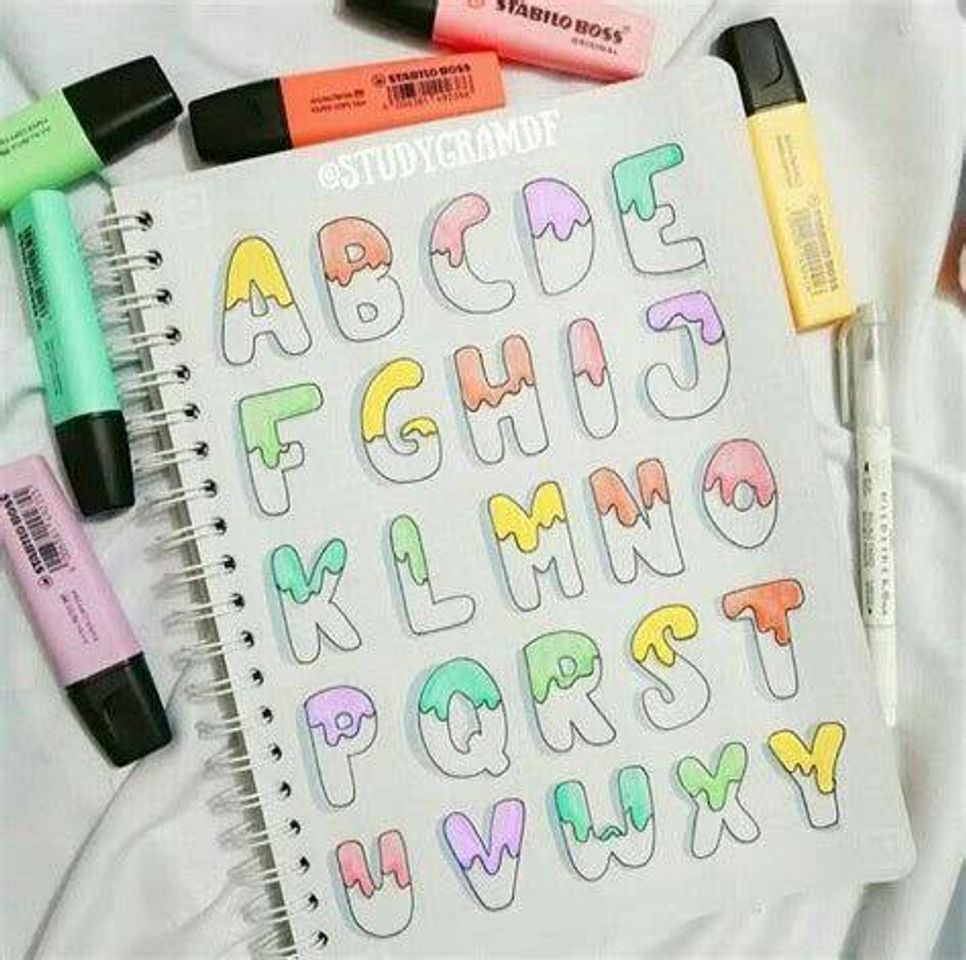 STABILO BOSS
ORIGINAL
STABILO BOSS
@STUDYGRAMDF
A B C D E
F G H I J
K L M N O
P Q R S T
U V W X Y
STABILO BOSS
STABILO BOSS